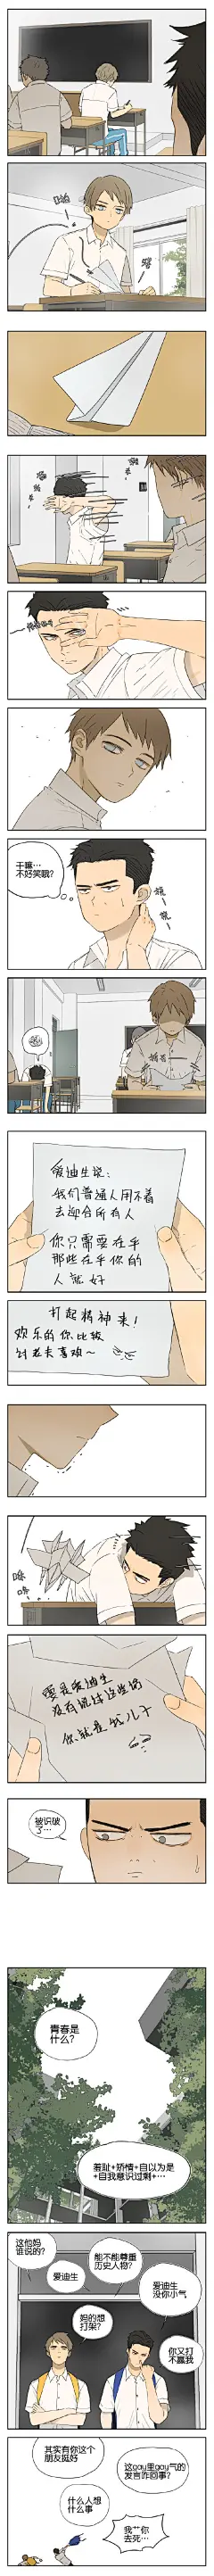 啪
干嘛…
不好笑哦?
爱迪生说:
我们普通人用不着
去迎合所有人
你只需要在乎
那些在乎你的
人就好
打起精神来!
欢乐的你比较
讨老夫喜欢~
要是爱迪生
没有说过这些话
你就是我儿子
被识破
了…
青春是
什么?
羞耻+矫情+自以为是
+自我意识过剩+…
这他妈
谁说的?
爱迪生
能不能尊重
历史人物?
爱迪生
没你小气
妈的想
打架?
你又打
不赢我
其实有你这个
朋友挺好
这gay里gay气的
发言咋回事?
什么人想
什么事
我艹你
去死…